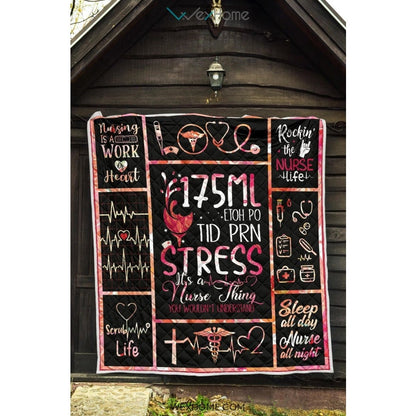 WEXHOME
Nursing
IS A
WORK
of
Heart
Rockin'
the
NURSE
life
175ML
ETOH PO
TID PRN
STRESS
It's a
Nurse Thing
YOU WOULDN'T UNDERSTAND
Scrub
Life
Sleep
all day
Nurse
all night
WEXHOME.COM